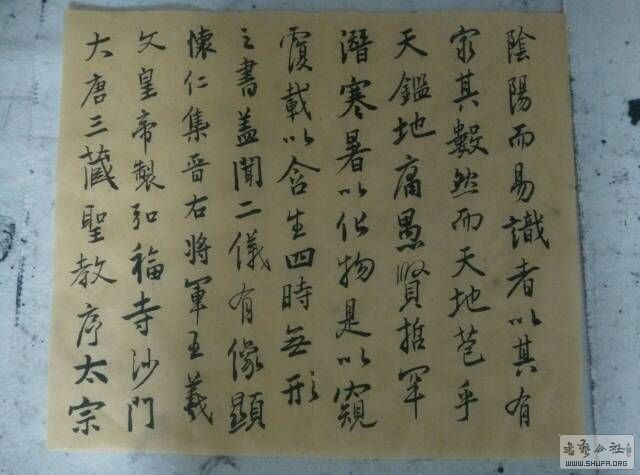 大唐三藏聖教序太宗
文皇帝製弘福寺沙門
懷仁集晉右將軍王羲
之書蓋聞二儀有像顯
覆載以含生四時無形
潛寒暑以化物是以窺
天鑑地庸愚賢哲罕
窮其數然而天地苞乎
陰陽而易識者以其有
书艺公社
WWW.SHUFA.ORG